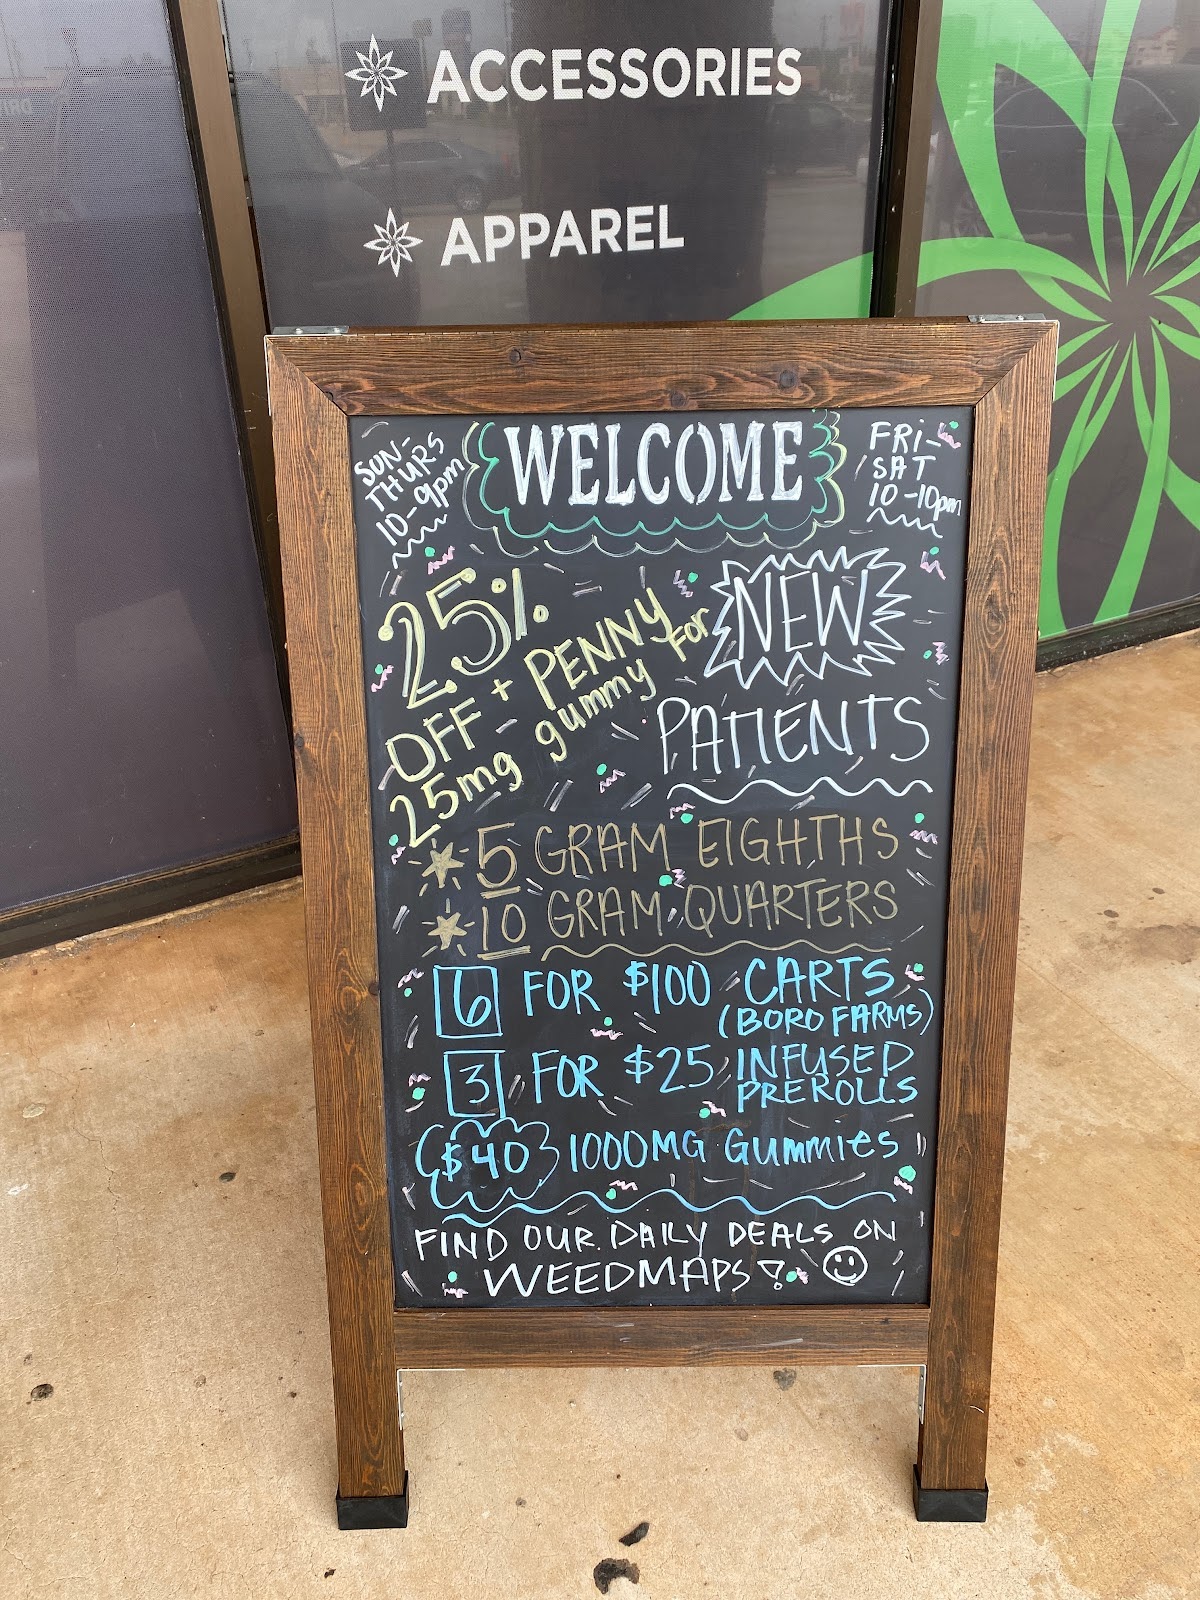 ACCESSORIES
APPAREL
SUN-
THURS
10-9pm
WELCOME
FRI-
SAT
10-10pm
25%
OFF + PENNY
25mg gummy for
NEW
PATIENTS
5 GRAM EIGHTHS
10 GRAM QUARTERS
6 FOR $100 CARTS
(BORO FARMS)
3 FOR $25 INFUSED
PREROLLS
$40 1000MG Gummies
FIND OUR DAILY DEALS ON
WEEDMAPS!